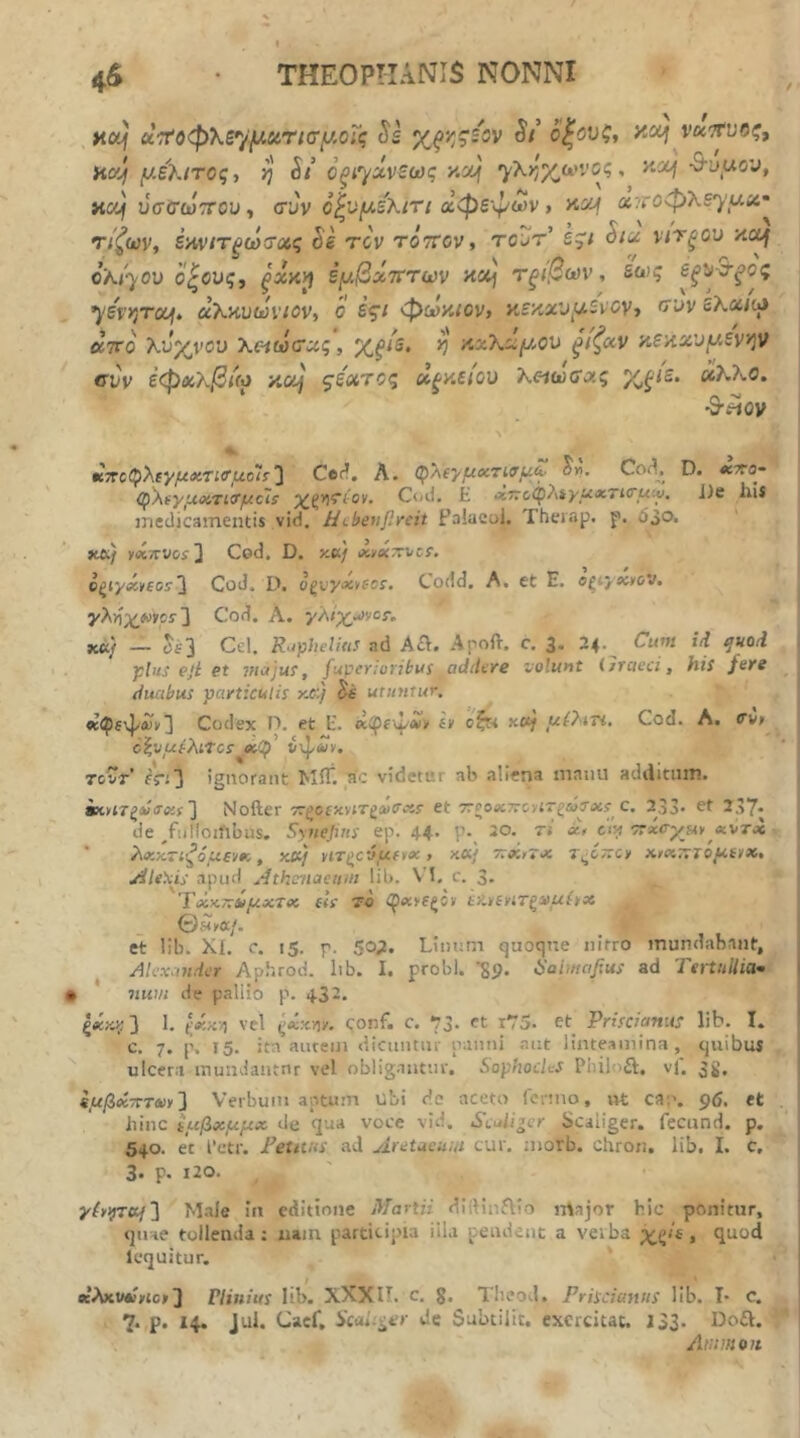 46 THEOPHANIS NONNI
καὶ ἀποφλεγματισμοῖς δὲ χρηστέον δι’ ὄξους, καὶ νάπυος,
καὶ μέλιτος, ἢ δι’ ὀριγάνεως καὶ γλήχωνος, καὶ θύμου,
καὶ ὑσσώπου, σὺν ὀξυμέλιτι ἀφεψῶν, καὶ ἀποφλεγμα-
τίζων, ἐκνιτρώσας δὲ τὸν τόπον, τοῦτ’ ἐστι διὰ νίτρου καὶ
ὀλίγου ὄξους, ῥάκῃ ἐμβάπτων καὶ τρίβων, ἕως ἐρυθρὸς
γένηται. ἀλκυώνιον, ὅ ἐστι φώκιον, κεκαυμένον, σὺν ἐλαίῳ
ἀπὸ λύχνου λειώσας, χρῖε. ἢ καλάμου ῥίζαν κεκαυμένην
σὺν ἐφαλβίῳ καὶ στέατος ἀρκείου λειώσας χρῖε. ἄλλο.
θεῖον
ἀποφλεγματισμοῖς] Cod. A. φλεγματισμῶ δή. Cod. D. ἀπο-
φλεγματισμοῖς χρηστέον. Cod. E ἀποφλεγματισμῶ. De his
medicamentis vid. Hebenstreit Palaeol. Therap. p. 630.
καὶ νάπυος] Cod. D. καὶ ἀνάπυος.
ὀριγάνεος] Cod. D. ὀρυγάνεος. Codd. A. et E. ὀριγάνου.
γλήχωνος] Cod. A. γλίχωνος.
καὶ — δὲ] Cel. Raphelius ad Act. Apost. c. 3. 24. Cum id quod
plus est et majus, superioribus addere volunt Graeci, his fere
duabus particulis καὶ δὲ utuntur.
ἀφεψῶν] Codex D. et E. ἀφεψῶν ἐν ὄξει καὶ μέλιτι. Cod. A. σὺν
ὀξυμέλιτος ἀφ’ ὑψῶν.
τοῦτ’ ἐστι] ignorant MSS. ac videtur ab aliena manu additum.
ἐκνιτρώσας] Noster προεκνιτρώσας et προαπονιτρώσας c. 233. et 237.
de fullonibus. Synesius ep. 44. p. 20. τί ἂν οἴῃ πάσχειν αὐτὰ
λακτιζόμενα, καὶ νιτρούμενα, καὶ πάντα τρόπον κναπτόμενα.
Alexis apud Athenaeum lib. VI. c. 3.
Τἀκπώματα εἰς τὸ φανερὸν ἐκνενιτρωμένα
Θεῖναι.
et lib. XI. c. 15. p. 502. Linum quoque nitro mundabant,
Alexander Aphrod. lib. I. probl. 89. Salmasius ad Tertullia-
num de pallio p. 432.
ῥάκῃ] l. ῥάκη vel ῥάκην. conf. c. 73. et 175. et Priscianus lib. I.
c. 7. p. 15. ita autem dicuntur panni aut linteamina, quibus
ulcera mundantur vel obligantur. Sophocles Philoct. vs. 38.
ἐμβάπτων] Verbum aptum ubi de aceto sermo, ut cap. 96. et
hinc ἐμβάμμα de qua voce vid. Scaliger Scaliger. secund. p.
540. et Petr. Petitus ad Aretaeum cur. morb. chron. lib. I. c.
3. p. 120.
γένηται] Male in editione Martii distinctio major hic ponitur,
quae tollenda: nam participia illa pendent a verba χρῖε, quod
sequitur.
ἀλκυώνιον] Plinius lib. XXXII. c. 8. Theod. Priscianus lib. I. c.
7. p. 14. Jul. Caes. Scaliger de Subtilit. exercitat. 133. Doct.
Ammon